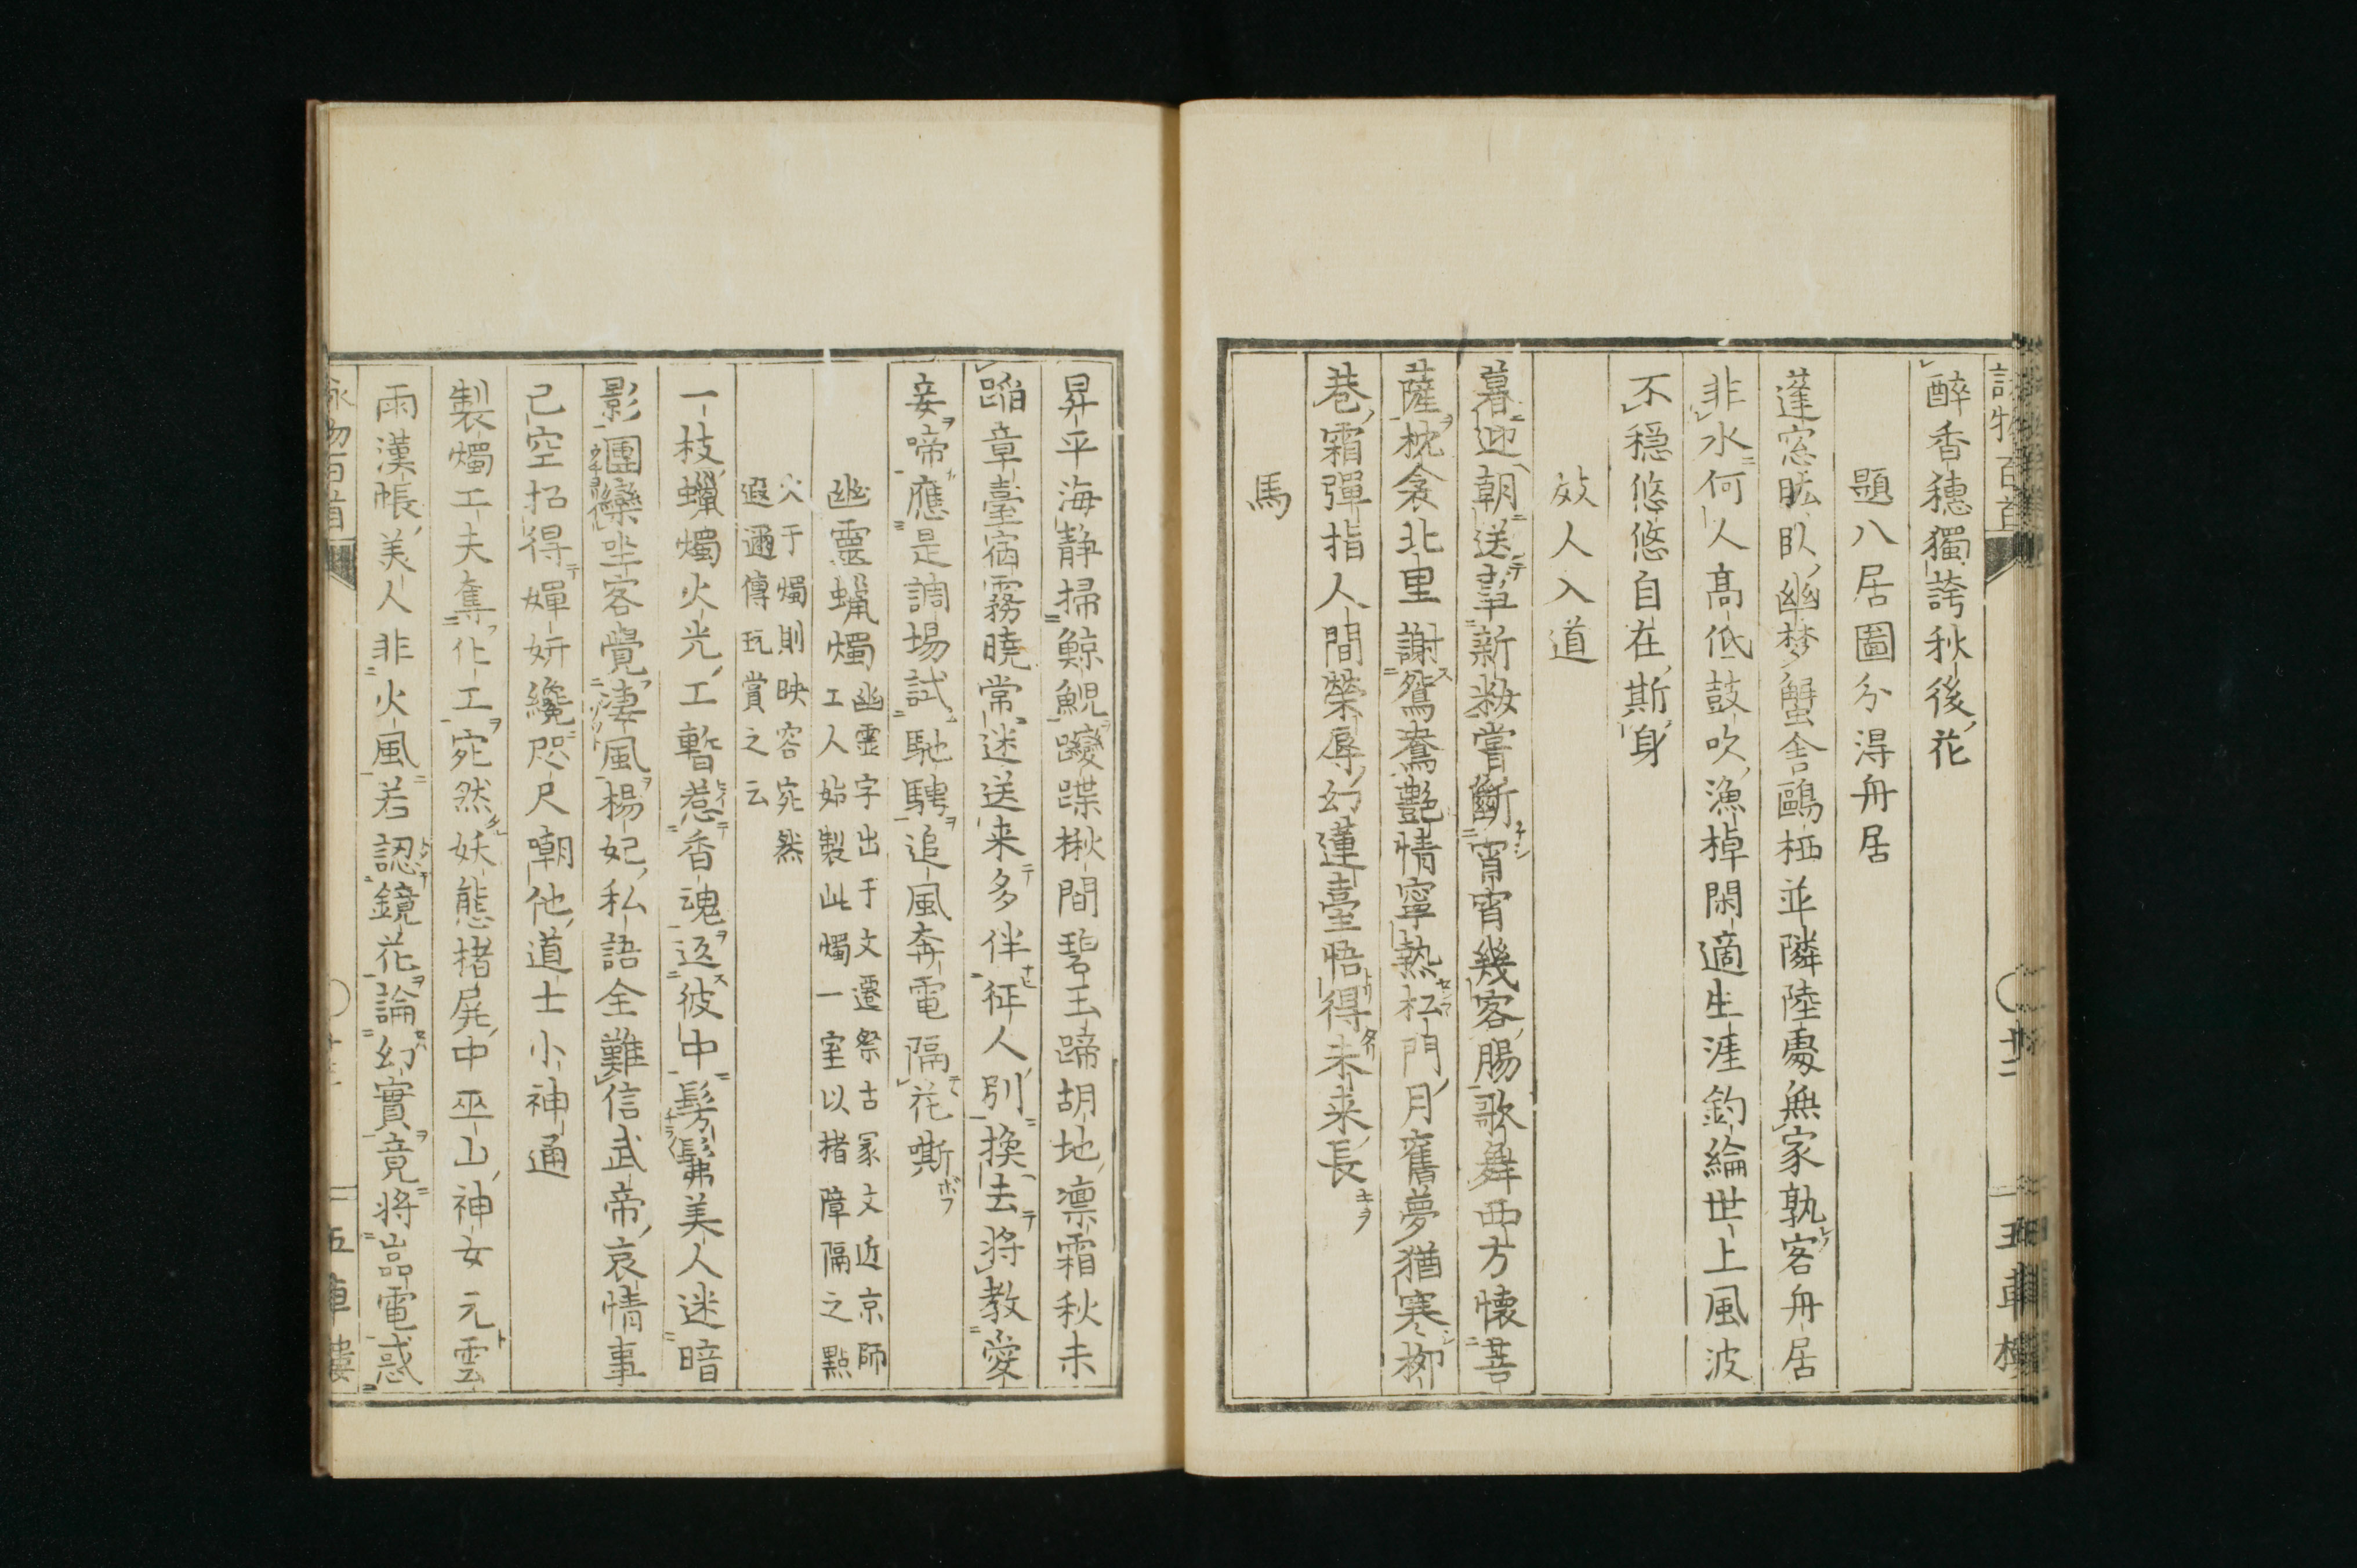 詠物百首
十二
五車樓
醉香穗獨誇秋後花
題八居圖分得舟居
蓬窓眩臥幽梦蟹舍鷗栖並隣陸處無家孰客舟居
非水何人高低鼓吹漁棹閑適生涯釣綸世上風波
不穏悠悠自在斯身
效人入道
暮迎朝送事新粧嘗斷宵宵幾客腸歌舞西方懷菩
薩枕衾北里謝鴛鴦艷情寧熱杠門月舊夢猶寒柳
巷霜彈指人間榮辱幻蓮臺悟得未来長
馬
昇平海静掃鯨鯢躞蹀楸間碧玉蹄胡地凛霜秋未
蹈章臺宿霧曉常迷送来多伴征人別換去將教愛
妾啼應是調場試馳騁追風奔電隔花嘶
幽靈蝋燭
幽霊字出于文選祭古冢文近京師
工人始製此燭一室以楮障隔之點
火于燭則映容宛然
遐邇傳玩賞之云
一枝蠟燭火光工暫惹香魂返彼中髣髴美人迷暗
影團欒坐客覺凄風楊妃私語全難信武帝哀情事
已空招得嬋妍纔咫尺嘲他道士小神通
製燭工夫奪化工宛然妖態楮屏中巫山神女元雲
雨漢帳美人非火風若認鏡花論幻實竟將嵓電惑
詠物百首
五車樓